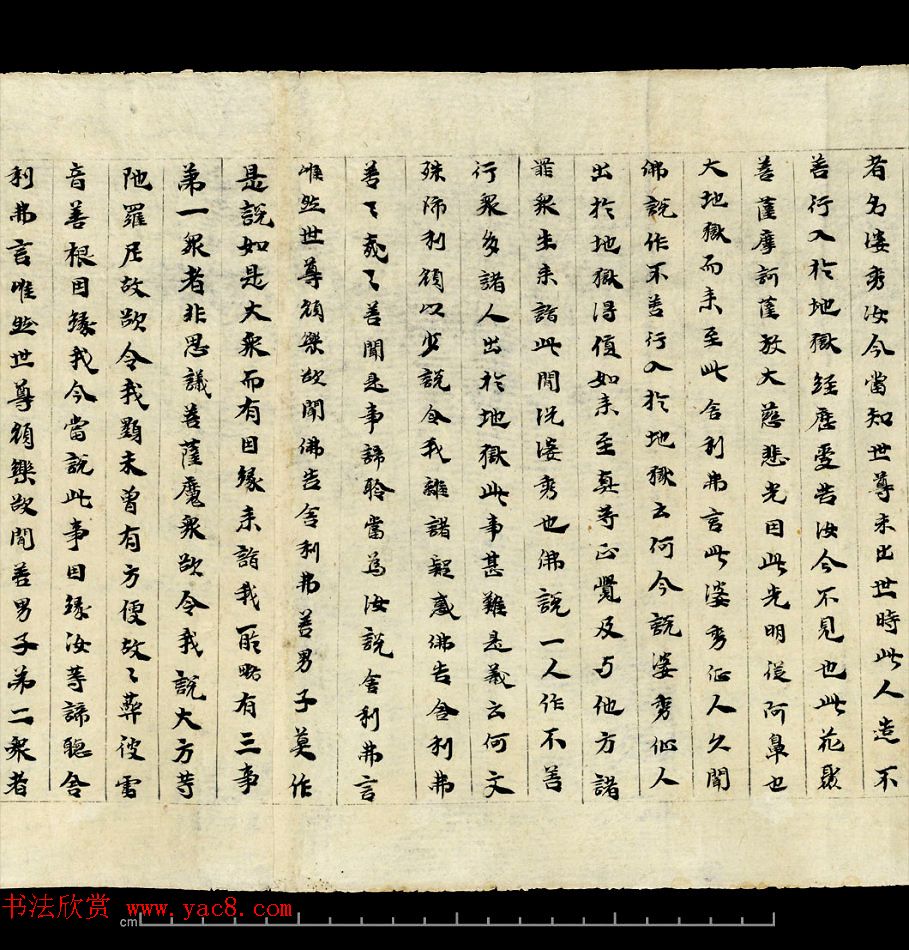 者名婆秀汝今當知世尊未出世時此人造不
善行入於地獄經歷受苦汝今不見也此花聚
菩薩摩訶薩放大慈悲光因此光明從阿鼻也
大地獄而来至此舍利弗言此婆秀仙人久聞
佛說作不善行入於地獄云何今說婆秀仙人
出於地獄得值如来至真等正覺及与他方諸
罪衆生来詣此間況婆秀也佛說一人作不善
行衆多諸人出於地獄此事甚難是義云何文
殊師利願以少說令我離諸疑惑佛告舍利弗
善々哉々善聞是事諦聆當為汝說舍利弗言
唯然世尊願樂欲聞佛告舍利弗善男子莫作
是說如是大衆而有因緣来詣我所略有三事
第一衆者非思議菩薩魔衆欲令我說大方等
陁羅尼故欲令我顯未曾有方便故々葬彼雷
音善根因緣我今當說此事因緣汝等諦聽舍
利弗言唯然世尊願樂欲聞善男子第二衆者
书法欣赏 www.yac8.com
cm